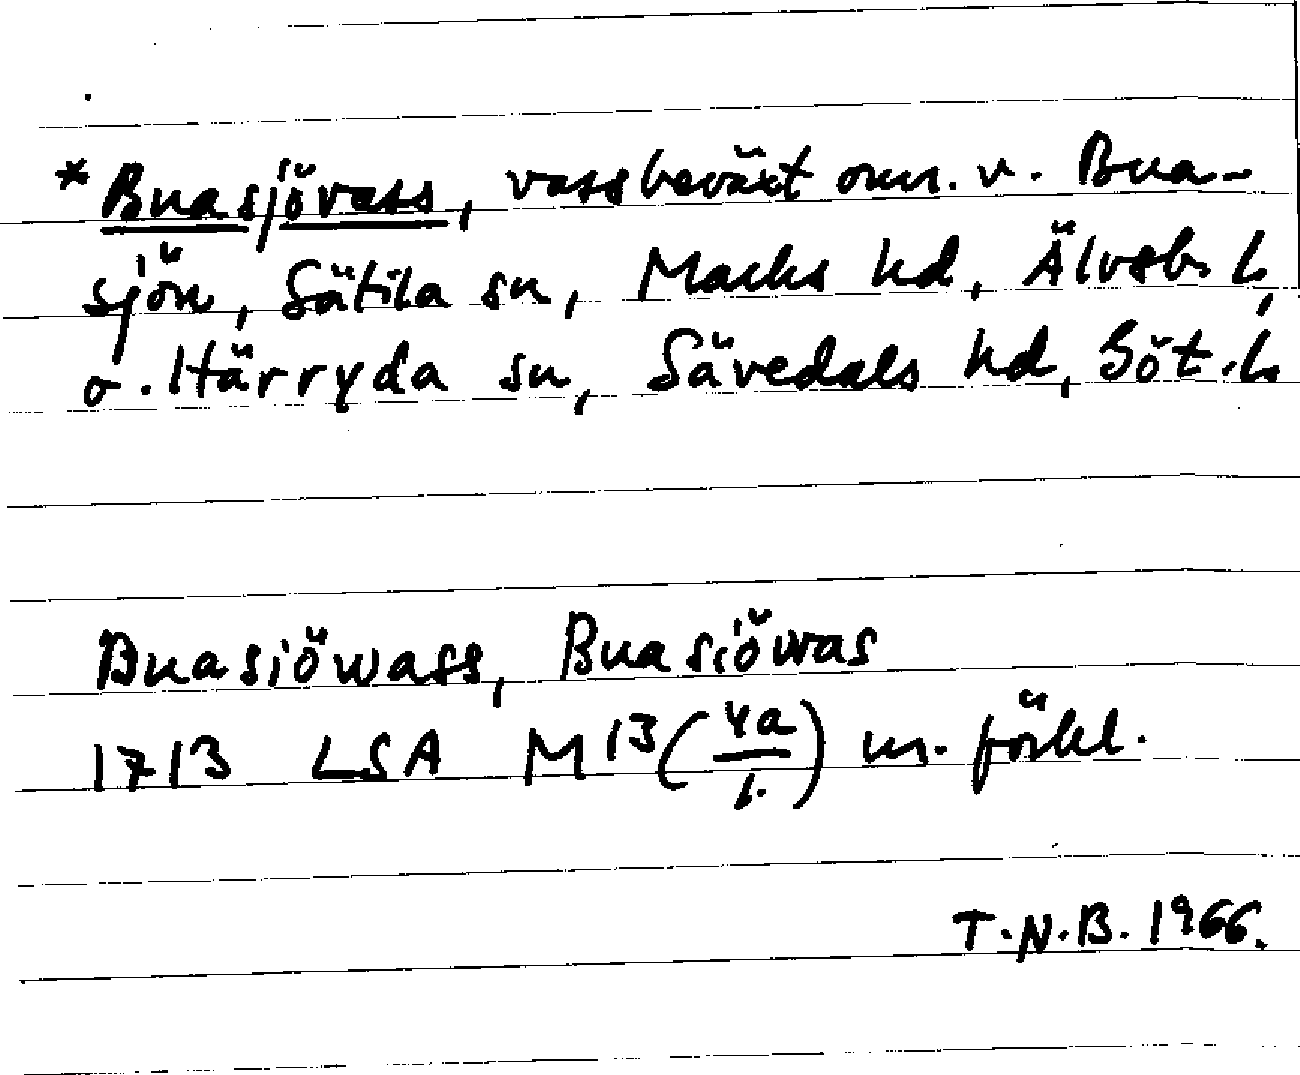 *Buasjövass, vassbeväxt omr. v. Bua-
sjön, Sätila sn, Marks hd, Älvsb. l.
o. Härryda sn, Sävedals hd, Göt. l.
Buasiöwass, Buasiöwas
1713 LSA M 13 (4a/1.) m. förkl.
T.N.B. 1966.